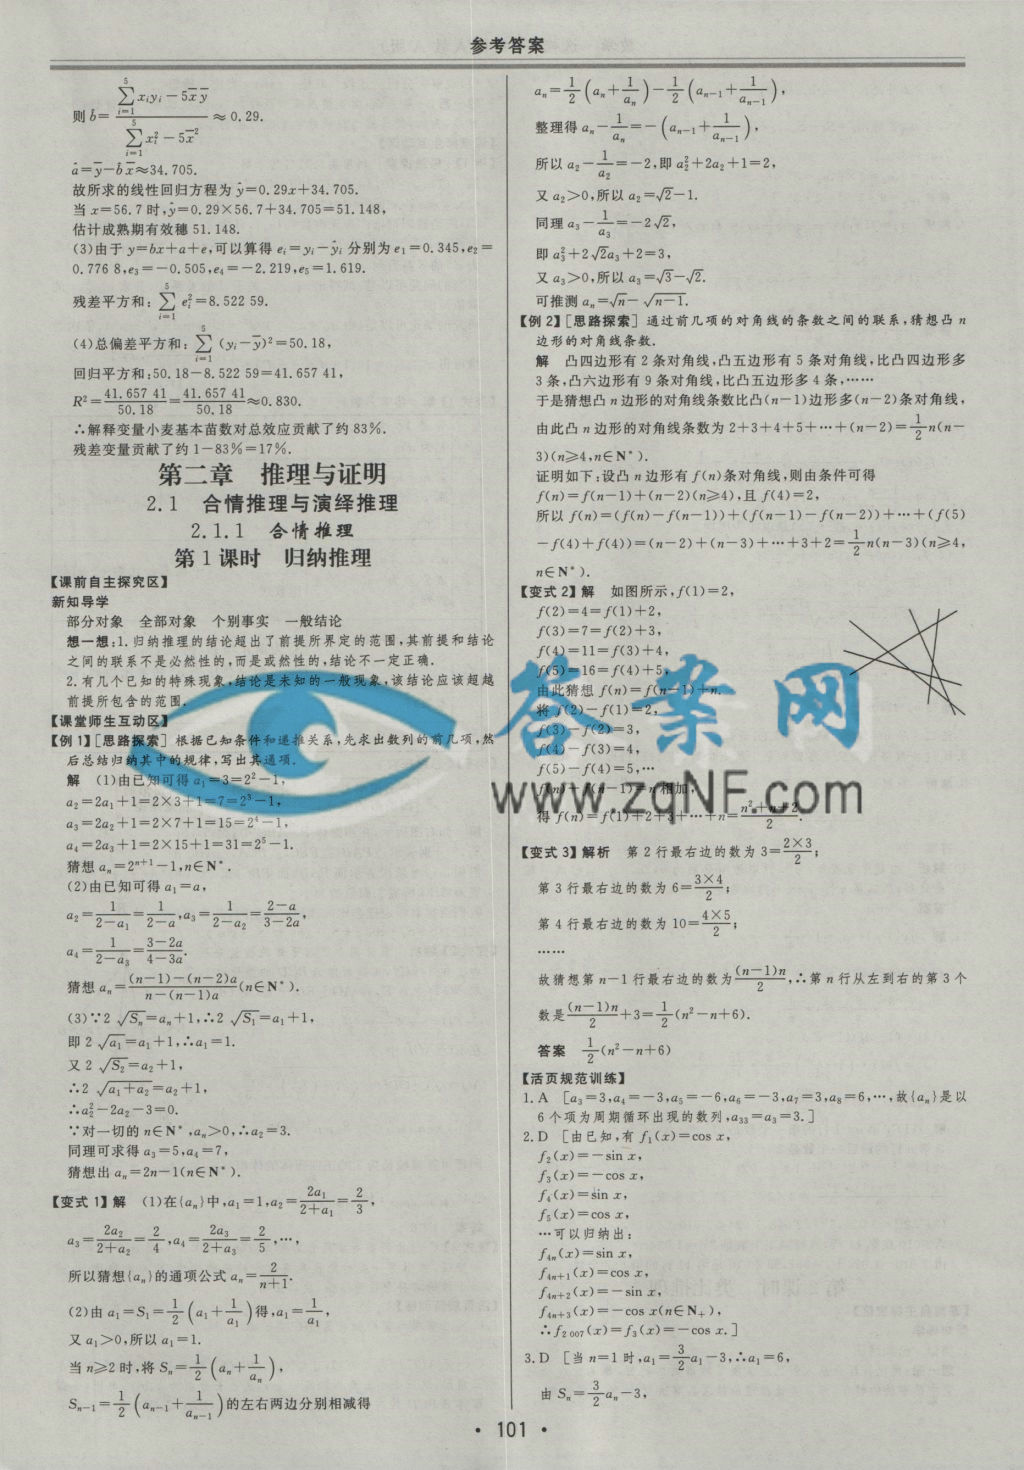 参考答案
则b̂=(∑_{i=1}^{5} x_iy_i-5x̄ȳ)/(∑_{i=1}^{5} x_i²-5x̄²)≈0.29.
â=ȳ-b̂x̄≈34.705.
故所求的线性回归方程为ŷ=0.29x+34.705.
当x=56.7时,ŷ=0.29×56.7+34.705=51.148,
估计成熟期有效穗51.148.
(3)由于y=bx+a+e,可以算得e_i=y_i-ŷ_i分别为e₁=0.345,e₂=
0.776 8,e₃=-0.505,e₄=-2.219,e₅=1.619.
残差平方和:∑_{i=1}^{5} e_i²=8.522 59.
(4)总偏差平方和:∑_{i=1}^{5}(y_i-ȳ)²=50.18,
回归平方和:50.18-8.522 59=41.657 41,
R²=41.657 41/50.18=41.657 41/50.18≈0.830.
∴解释变量小麦基本苗数对总效应贡献了约83%.
残差变量贡献了约1-83%=17%.
第二章 推理与证明
2.1 合情推理与演绎推理
2.1.1 合情推理
第1课时 归纳推理
【课前自主探究区】
新知导学
部分对象 全部对象 个别事实 一般结论
想一想:1.归纳推理的结论超出了前提所界定的范围,其前提和结论
之间的联系不是必然性的,而是或然性的,结论不一定正确.
2.有几个已知的特殊现象,结论是未知的一般现象,该结论应该超越
前提所包含的范围.
【课堂师生互动区】
【例1】[思路探索] 根据已知条件和递推关系,先求出数列的前几项,然
后总结归纳其中的规律,写出其通项.
解 (1)由已知可得a₁=3=2²-1,
a₂=2a₁+1=2×3+1=7=2³-1,
a₃=2a₂+1=2×7+1=15=2⁴-1,
a₄=2a₃+1=2×15+1=31=2⁵-1.
猜想aₙ=2ⁿ⁺¹-1,n∈N*.
(2)由已知可得a₁=a,
a₂=1/(2-a₁)=1/(2-a),a₃=1/(2-a₂)=(2-a)/(3-2a),
a₄=1/(2-a₃)=(3-2a)/(4-3a).
猜想aₙ=((n-1)-(n-2)a)/(n-(n-1)a)(n∈N*).
(3)∵2√Sₙ=aₙ+1,∴2√S₁=a₁+1,
即2√a₁=a₁+1,∴a₁=1.
又2√S₂=a₂+1,
∴2√(a₁+a₂)=a₂+1,
∴a₂²-2a₂-3=0.
∵对一切的n∈N*,aₙ>0,∴a₂=3.
同理可求得a₃=5,a₄=7,
猜想出aₙ=2n-1(n∈N*).
【变式1】解 (1)在{aₙ}中,a₁=1,a₂=2a₁/(2+a₁)=2/3,
a₃=2a₂/(2+a₂)=2/4,a₄=2a₃/(2+a₃)=2/5,…,
所以猜想{aₙ}的通项公式aₙ=2/(n+1).
(2)由a₁=S₁=1/2(a₁+1/a₁)得,a₁=1/a₁,
又a₁>0,所以a₁=1.
当n≥2时,将Sₙ=1/2(aₙ+1/aₙ),
Sₙ₋₁=1/2(aₙ₋₁+1/aₙ₋₁)的左右两边分别相减得
aₙ=1/2(aₙ+1/aₙ)-1/2(aₙ₋₁+1/aₙ₋₁),
整理得aₙ-1/aₙ=-(aₙ₋₁+1/aₙ₋₁),
所以a₂-1/a₂=-2,即a₂²+2a₂+1=2,
又a₂>0,所以a₂=√2-1.
同理a₃-1/a₃=-2√2,
即a₃²+2√2a₃+2=3,
又a₃>0,所以a₃=√3-√2.
可推测aₙ=√n-√(n-1).
【例2】[思路探索] 通过前几项的对角线的条数之间的联系,猜想凸n
边形的对角线条数.
解 凸四边形有2条对角线,凸五边形有5条对角线,比凸四边形多
3条,凸六边形有9条对角线,比凸五边形多4条,……
于是猜想凸n边形的对角线条数比凸(n-1)边形多(n-2)条对角线,
由此凸n边形的对角线条数为2+3+4+5+…+(n-2)=1/2n(n-
3)(n≥4,n∈N*).
证明如下:设凸n边形有f(n)条对角线,则由条件可得
f(n)=f(n-1)+(n-2)(n≥4),且f(4)=2,
所以f(n)=(f(n)-f(n-1))+(f(n-1)-f(n-2))+…+(f(5)
-f(4)+f(4))=(n-2)+(n-3)+…+3+2=1/2n(n-3)(n≥4,
n∈N*).
【变式2】解 如图所示,f(1)=2,
f(2)=4=f(1)+2,
f(3)=7=f(2)+3,
f(4)=11=f(3)+4,
f(5)=16=f(4)+5,
由此猜想f(n)=f(n-1)+n.
将f(2)-f(1)=2,
f(3)-f(2)=3,
f(4)-f(3)=4,
f(5)-f(4)=5,…
f(n)-f(n-1)=n相加,
得f(n)=f(1)+2+3+…+n=(n²+n+2)/2.
【变式3】解析 第2行最右边的数为3=2×3/2;
第3行最右边的数为6=3×4/2;
第4行最右边的数为10=4×5/2;
……
故猜想第n-1行最右边的数为(n-1)n/2,∴第n行从左到右的第3个
数是(n-1)n/2+3=1/2(n²-n+6).
答案 1/2(n²-n+6)
【活页规范训练】
1.A [a₃=3,a₄=-3,a₅=-6,a₆=-3,a₇=3,a₈=6,…,故{aₙ}是以
6个项为周期循环出现的数列,a₃₃=a₃=3.]
2.D [由已知,有f₁(x)=cos x,
f₂(x)=-sin x,
f₃(x)=-cos x,
f₄(x)=sin x,
f₅(x)=cos x,
…可以归纳出:
f₄ₙ(x)=sin x,
f₄ₙ₊₁(x)=cos x,
f₄ₙ₊₂(x)=-sin x,
f₄ₙ₊₃(x)=-cos x(n∈N₊),
∴f₂ ₀₀₇(x)=f₃(x)=-cos x.]
3.D [当n=1时,a₁=3/2a₁-3,∴a₁=6,
由Sₙ=3/2aₙ-3,
答案网
www.zqNF.com
• 101 •